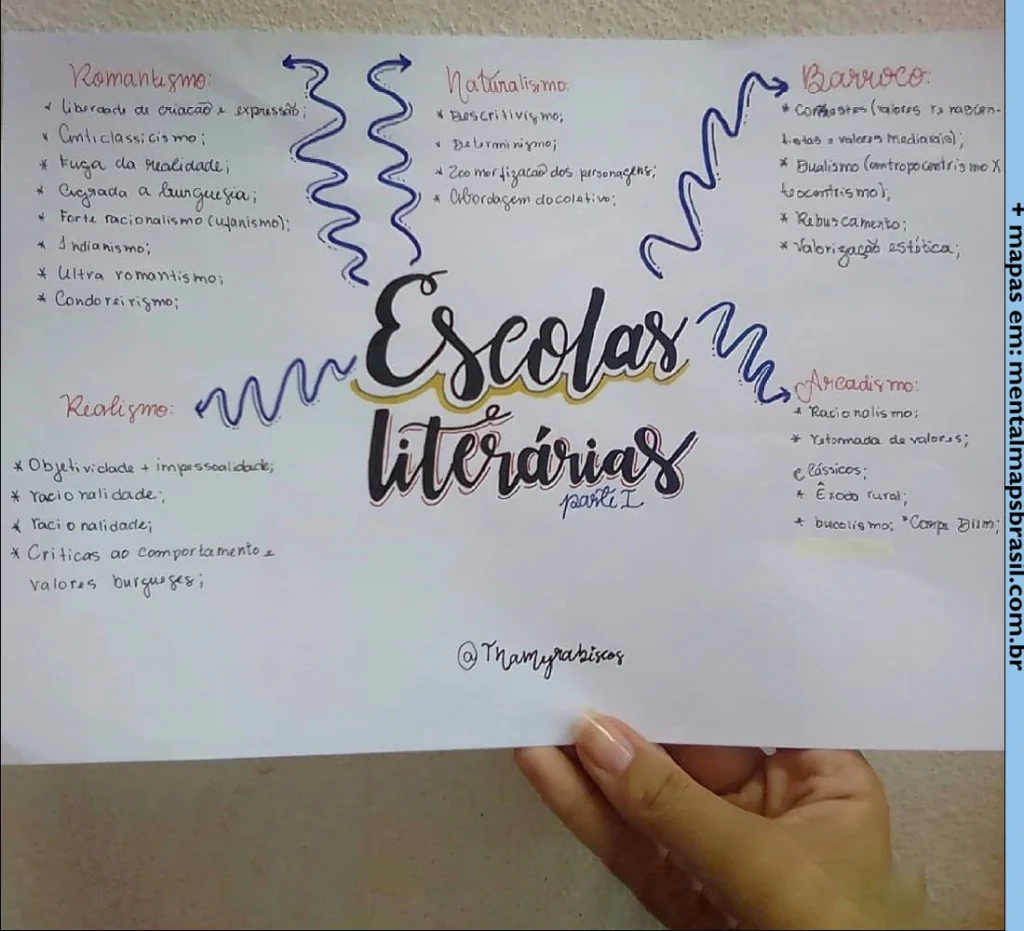 Romantismo:
* liberdade de criação e expressão;
* Anticlassicismo;
* Fuga da realidade;
* a burguesia;
* Forte racionalismo (ufanismo);
* Indianismo;
* Ultra romantismo;
* Condoreirismo;
Naturalismo:
* Descritivismo;
* Determinismo;
* Zoomorfização dos personagens;
* Abordagem do coletivo;
Barroco:
* (valores renascen-
tistas x valores mediavais);
* Dualismo (antropocentrismo X
teocentrismo);
* Rebuscamento;
* Valorização estética;
Escolas
literárias
parte I
Realismo:
* Objetividade + impessoalidade;
* racionalidade;
* racionalidade;
* Criticas ao comportamento e
valores burgueses;
Arcadismo:
* Racionalismo;
* retomada de valores;
clássicos;
* Êxodo rural;
* bucolismo; *Carpe Diem;
@Thamyrabiscos
+ mapas em: mentalmapsbrasil.com.br